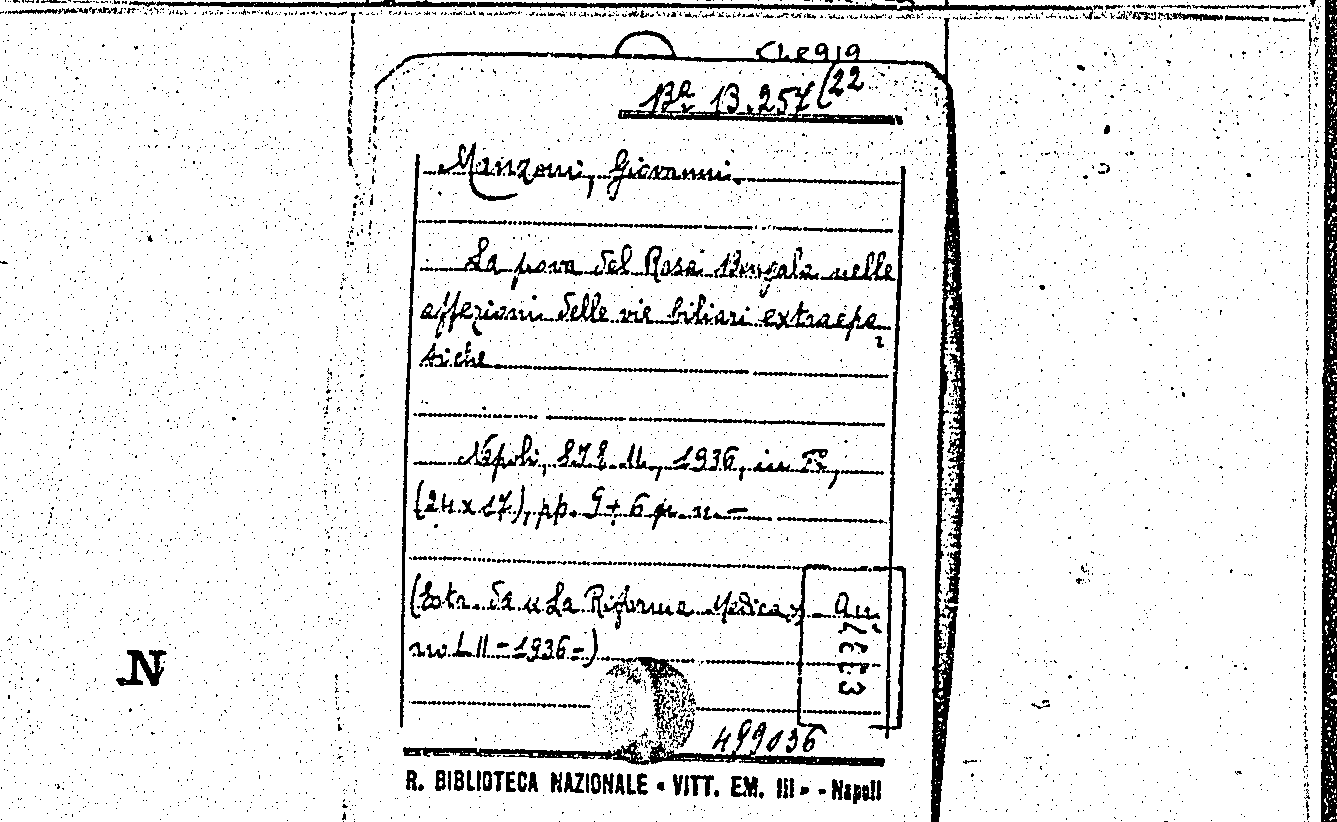 Ba B.257(22
Manzoni, Giovanni.
La prova del Rosa Bengala nelle
affezioni delle vie biliari extraepa,
tiche
Napoli, 1936, in 8°,
(24x17), pp. 9+6 n. n. -
(Estr. da « La Riforma Medica » - An,
no LII - 1936 - )
499036
R. BIBLIOTECA NAZIONALE « VITT. EM. III » - Napoli
N